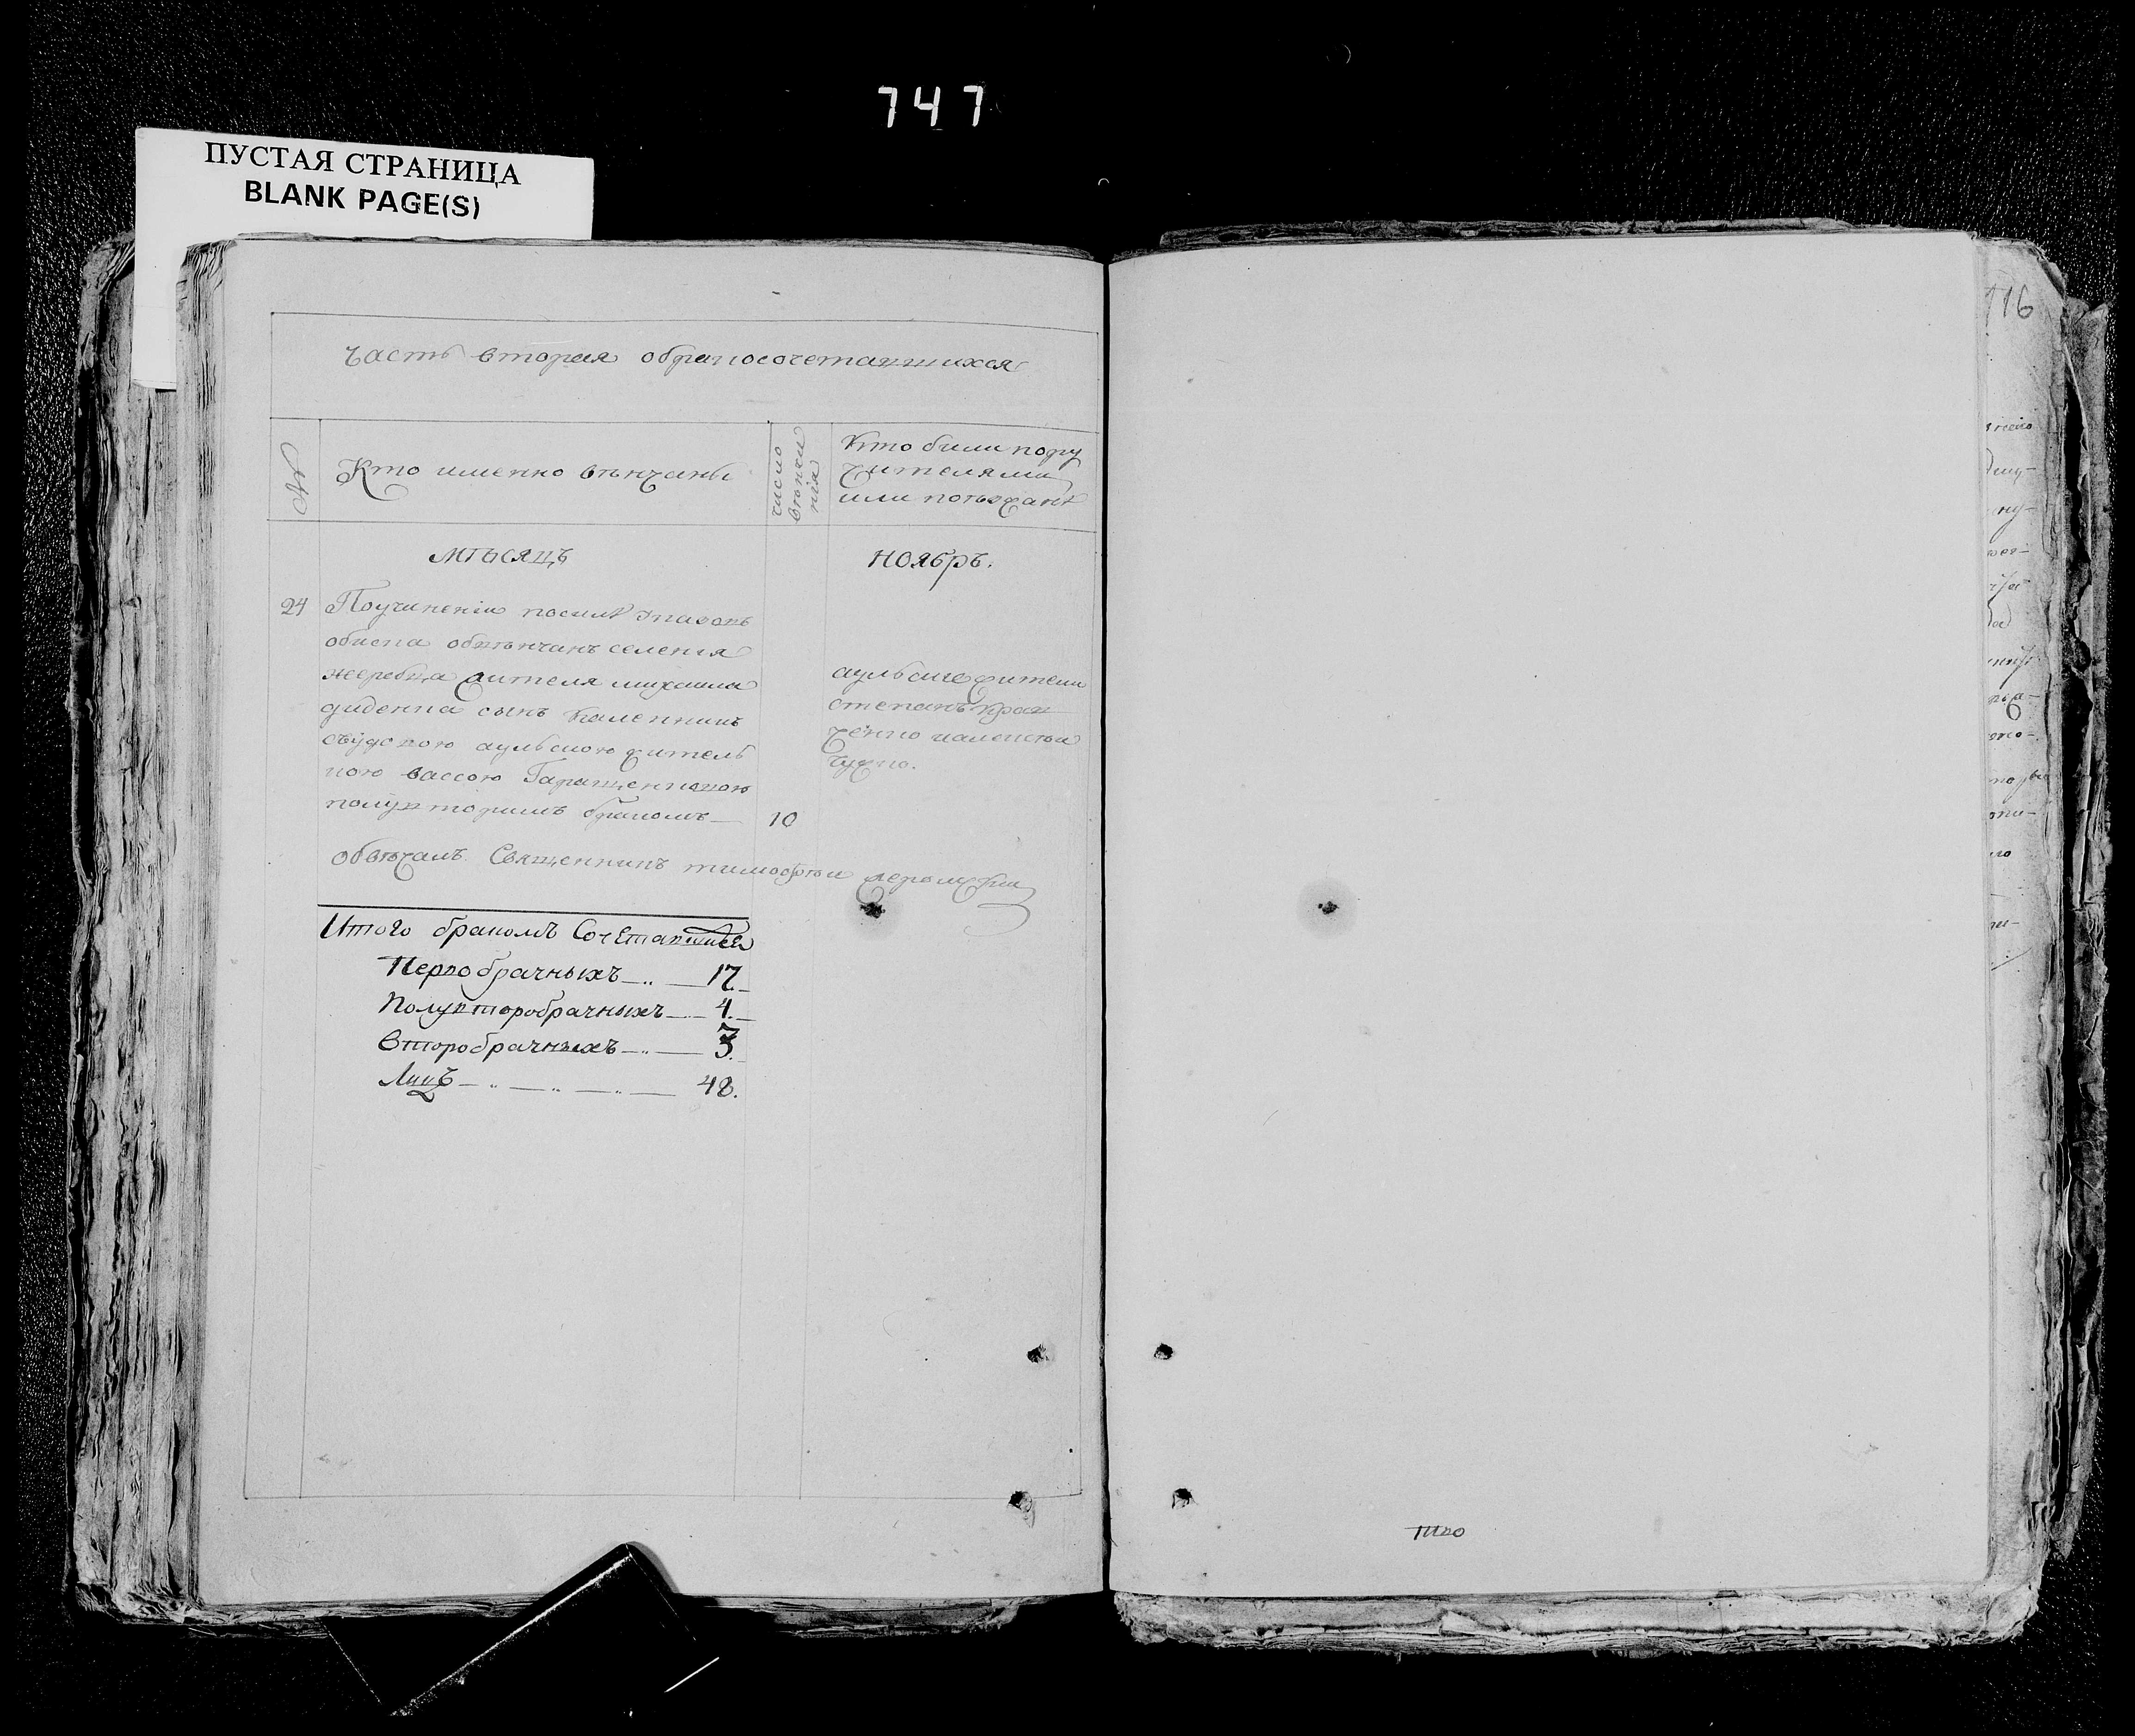 747
ПУСТАЯ СТРАНИЦА
BLANK PAGE(S)
116
часть вторая обракосочетавшихся
№
Кто именно вѣнчаны
число вѣнчанія
Кто были пору
чителями
или поѣзжанѣ
мѣсяцъ
ноябрь.
24
Поучиненіи посилѣ указовъ
обиска обвѣнчанъ селенія
жеребца жителя михаила
диденка сынъ
вдовою аульскою житель
кою вассою Гаращенковою
полувторимъ бракомъ
10
аульские жители
степанъ Крав
ченко
чужко.
обвѣчалъ Священникъ тимофѣй
Итого бракомъ Сочетавшися
Первобрачныхъ 17.
Полувторобрачныхъ 4.
Второбрачныхъ 3.
Лицъ 48.